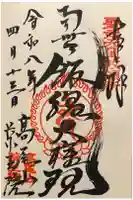 奉拝
南無飯縄大権現
令和八年
四月十三日
髙尾山
薬王院